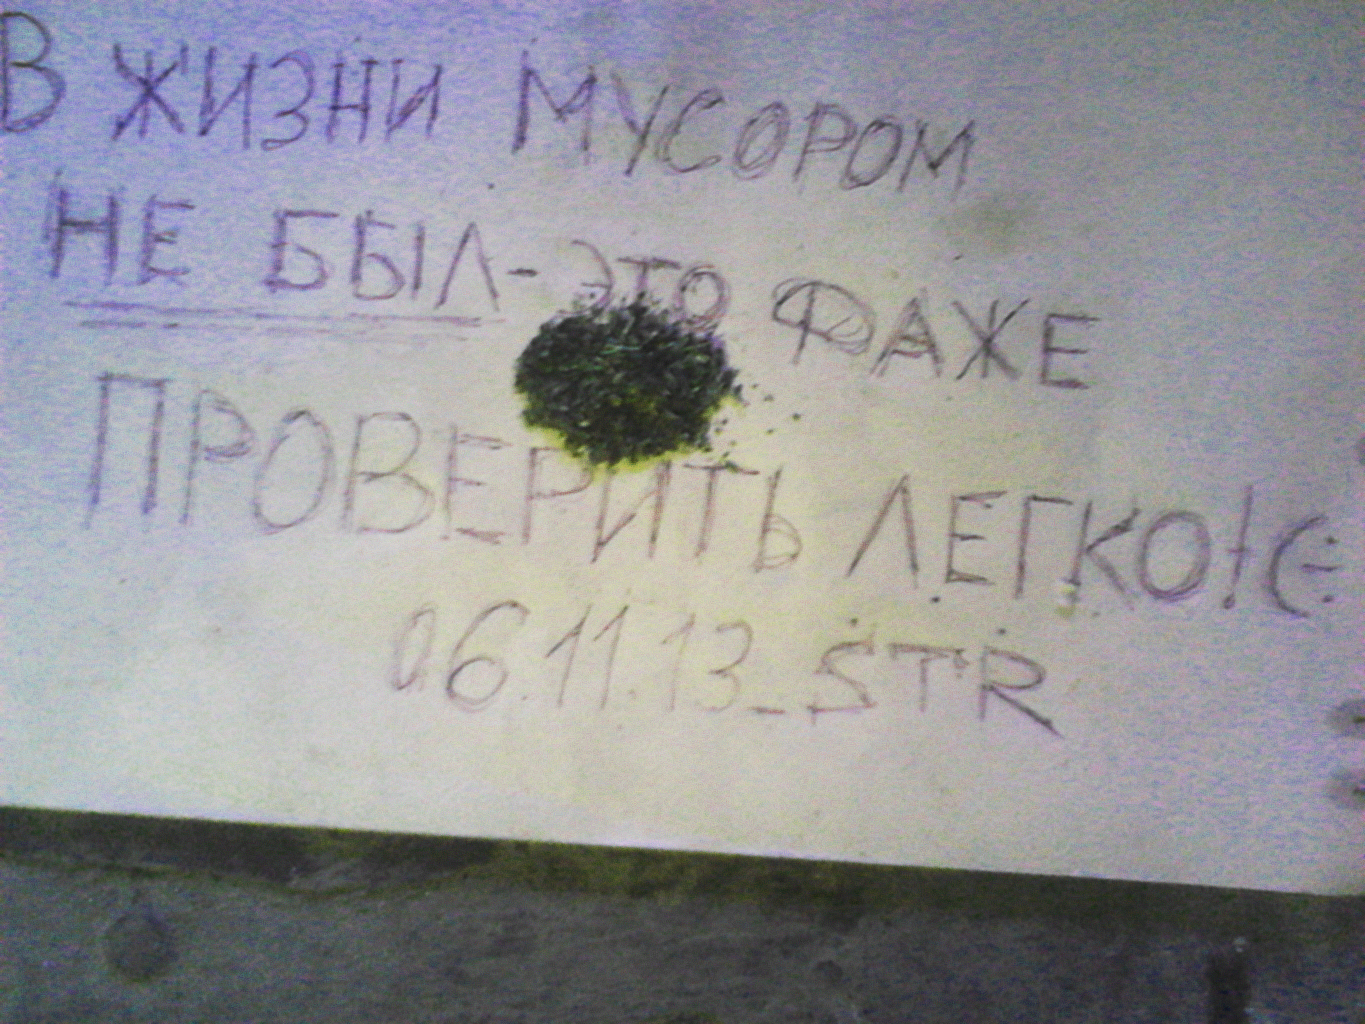 В ЖИЗНИ МУСОРОМ
НЕ БЫЛ-ЭТО ФАЖЕ
ПРОВЕРИТЬ ЛЕГКО!(-:
06.11.13_STR